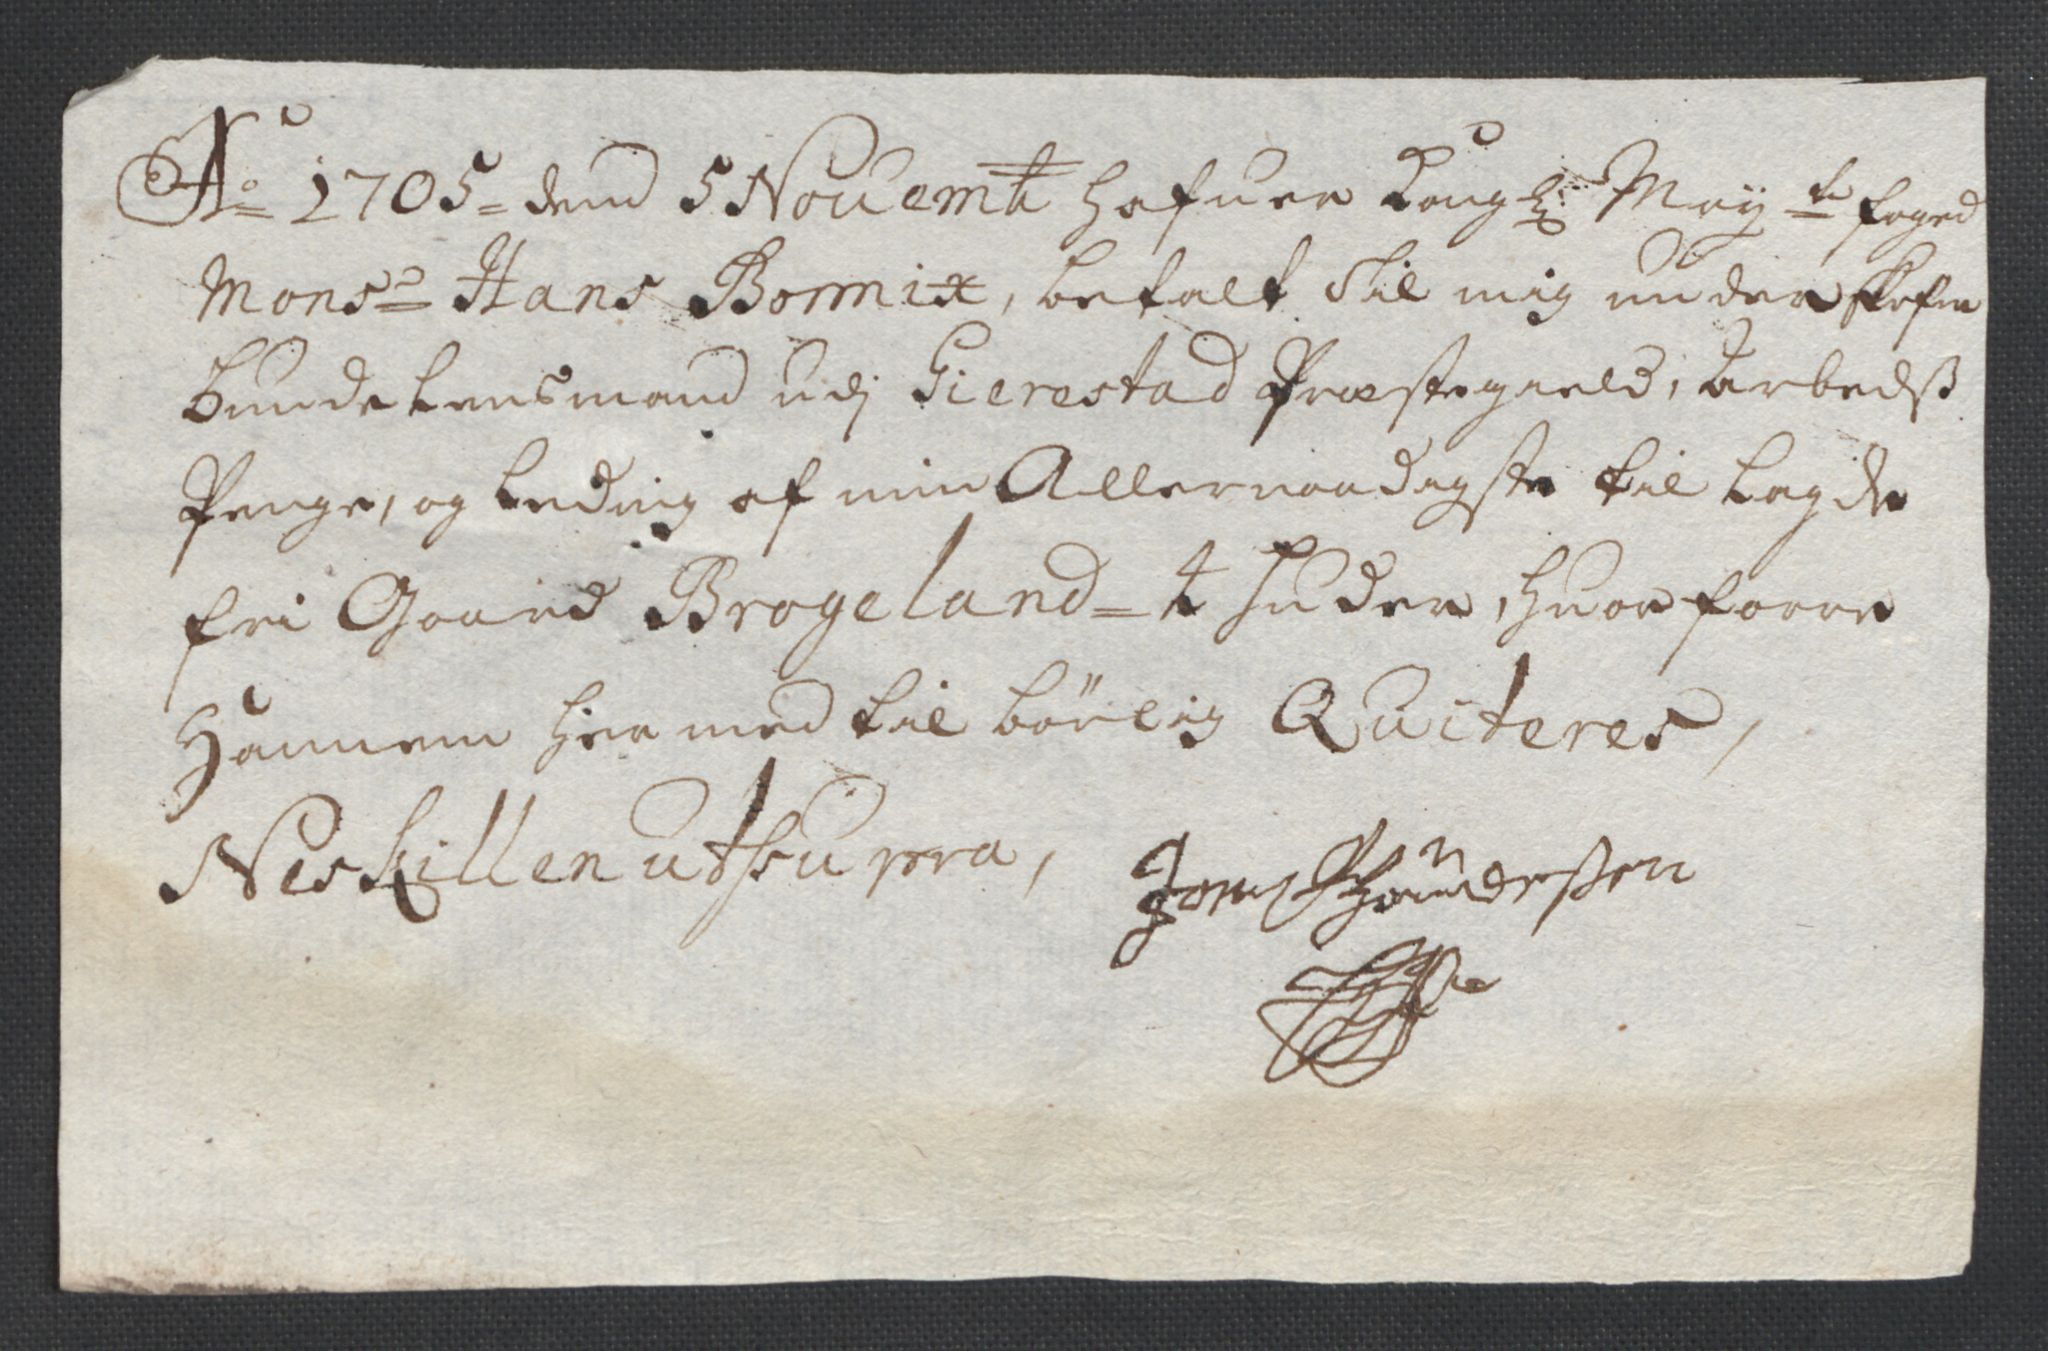 Ao 1705 = dend 5 Novemb hafuer Kong: l: May: ts foged
Monsr Hans Bomnix, betalt Til mig underskrefne
Bunde Lensmand udj Gierestad Præstegield, Arbeds
Penge, og Leding af min Allernaadigste til Lagde
fri Gaard Brogeland = 4 Huder, huor forre
Hannem hermed til börlig Quiteres,
Neskillen ut supra,